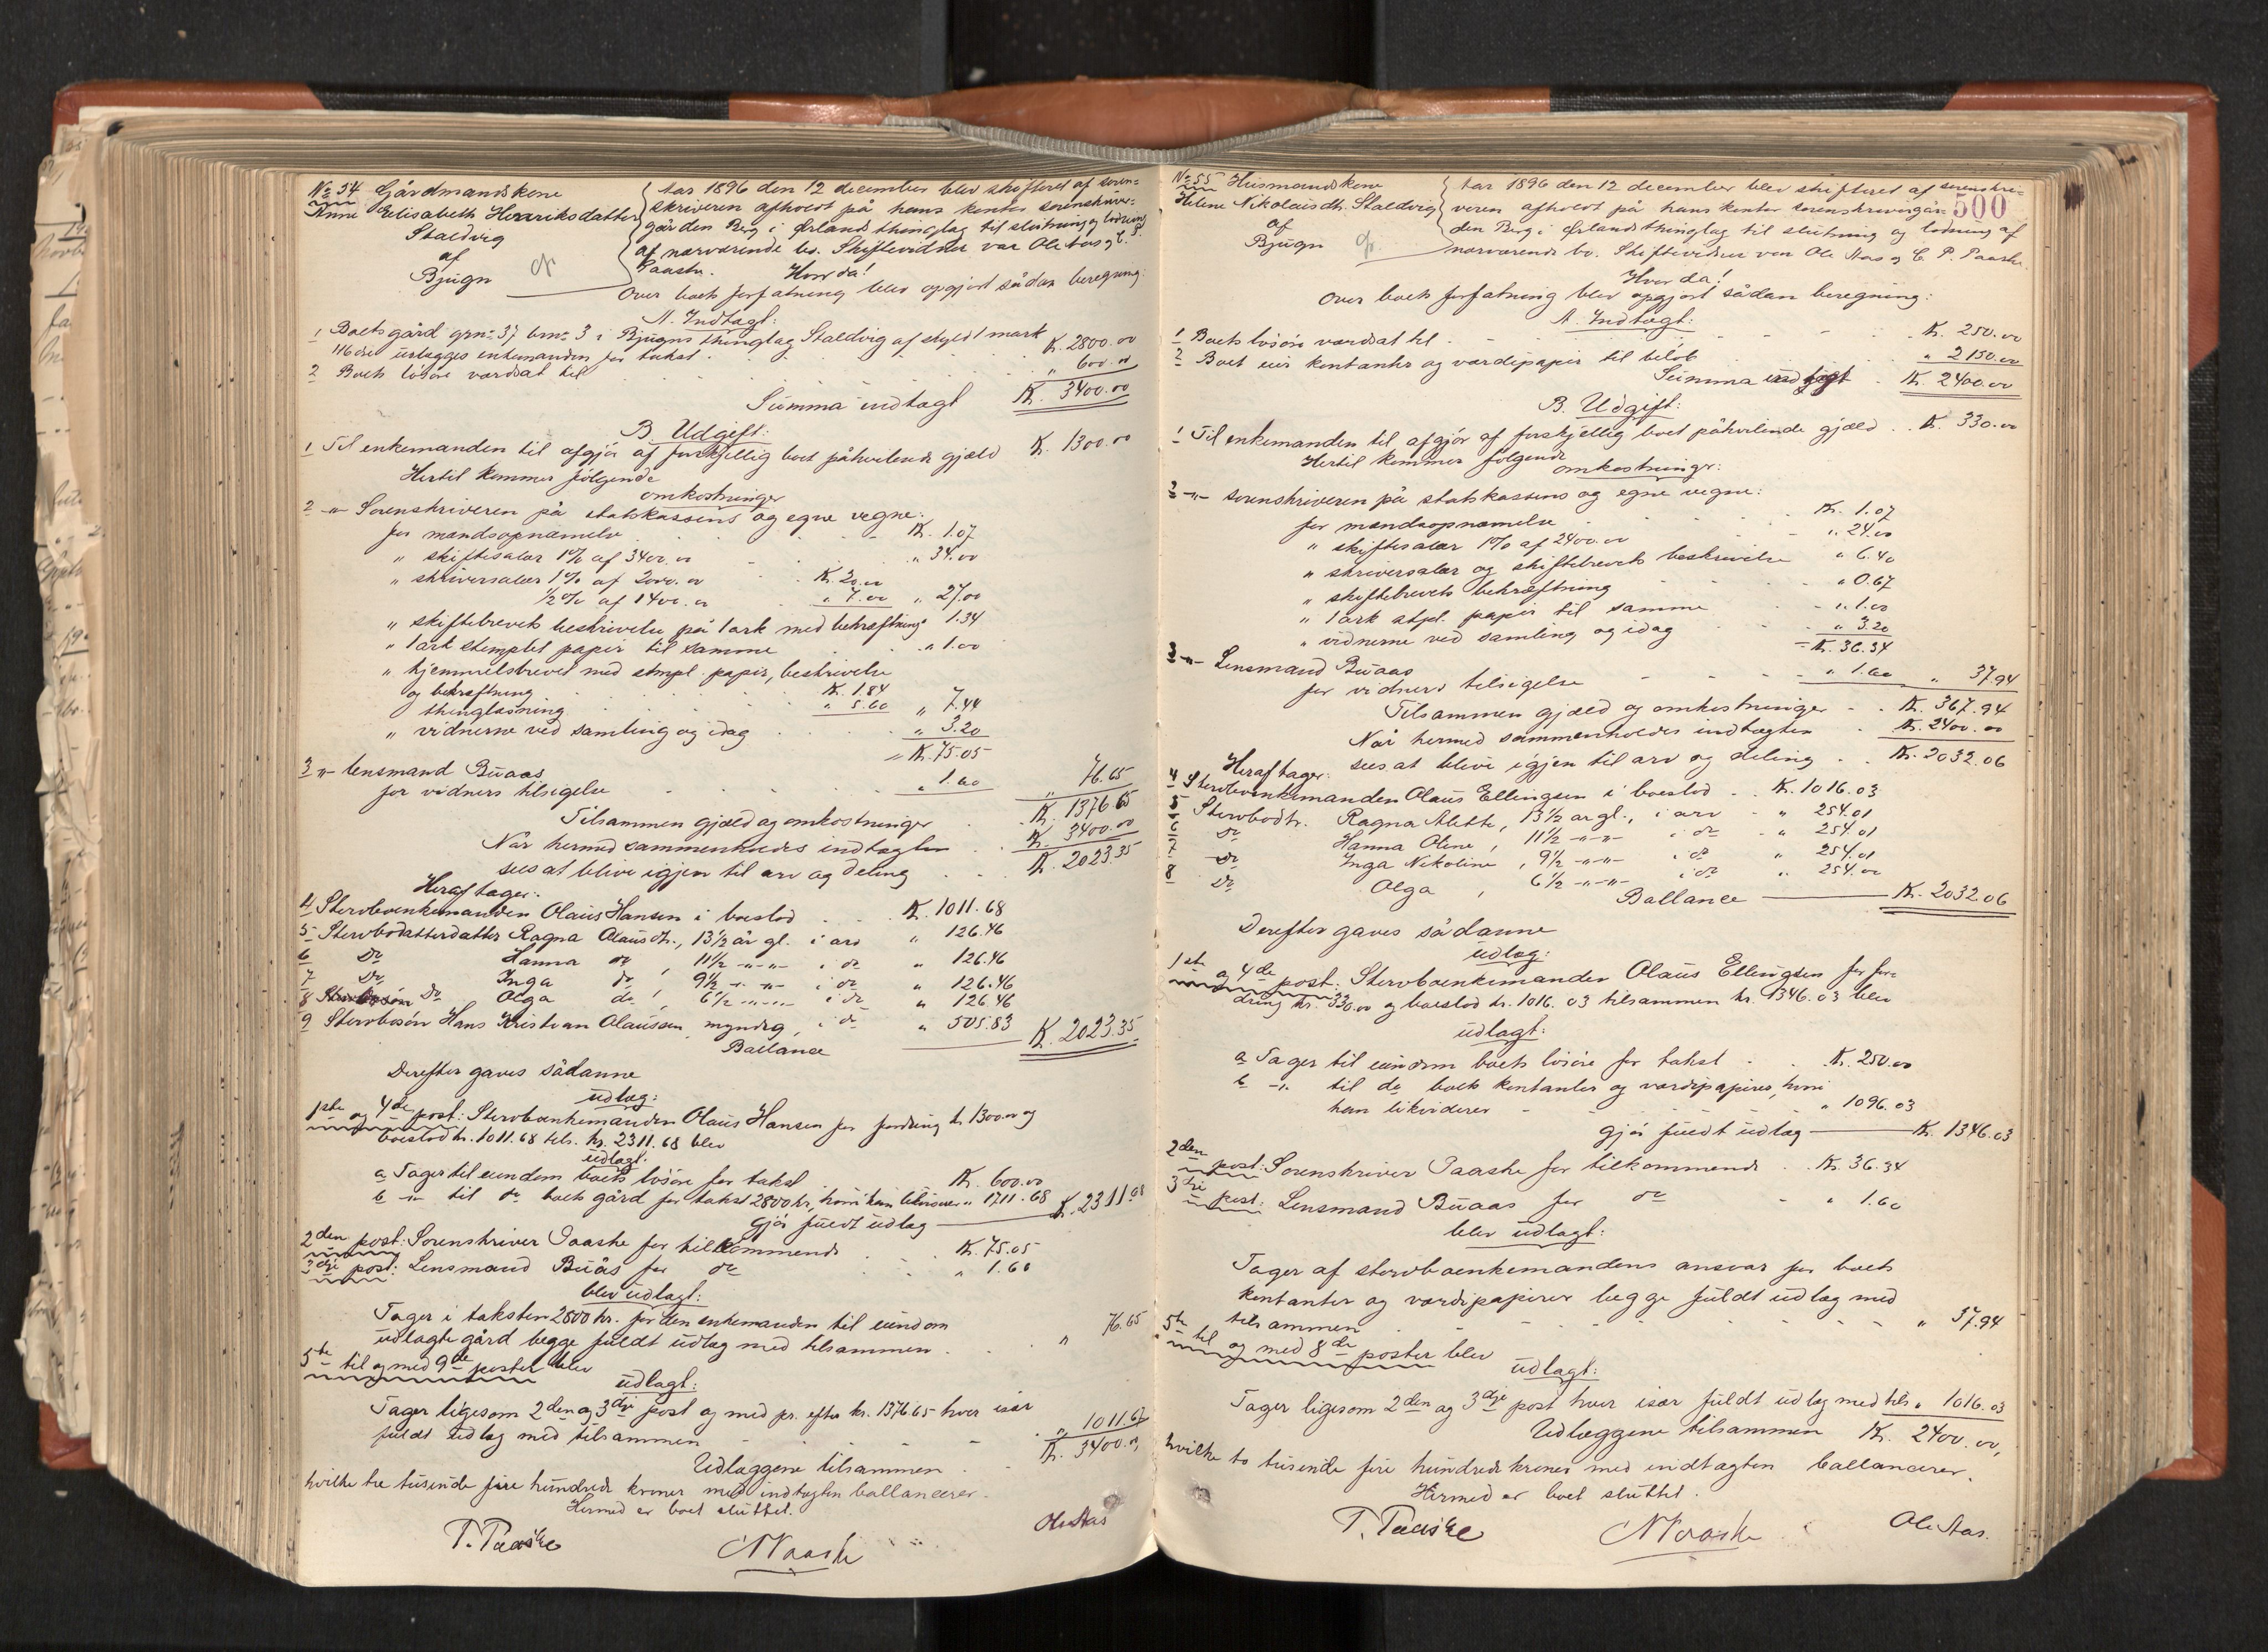 No 54 Gårdmandskone
Anne Elisabeth Henriksdatter
Staldvig
af
Bjugn
Aar 1896 den 12 december blev skifteret af soren=
skriveren afholdt på hans kontor sorenskriver=
gården Berg i Ørlands thinglag til slutning og lodning
af nærværende bo. Skiftevidner var Ole Aas og C. P.
Paaske. Hvor da!
Over boets forfatning blev opgjort sådan beregning:
A. Indtægt:
1 Boets gård grno 37 brno 3 i Bjugns thinglag Staldvig af skyld 1 mark
46 øre udlægges enkemanden for takst . Kr. 2800.00
2 Boets løsøre værdsat til " 600.00
Summa indtægt Kr. 3400.00
B. Udgift:
1 Til enkemanden til afgjør af forskjellig boet påhvilende gjæld Kr. 1300.00
Hertil kommer følgende
omkostninger
2 -"- Sorenskriveren på statskassens og egne vegne:
for mandsopnævnelse Kr. 1.07
" skiftesalær 1% af 3400.00 " 34.00
" skriversalær 1% af 2000.00 Kr. 20.00
1/2% af 1400.00 " 7.00 " 27.00
" skiftebrevets beskrivelse på 1 ark med bekræftning " 1.34
" 1 ark stemplet papir til samme " 1.00
" hjemmelsbrevet med stmpl. papir, beskrivelse
og bekræftning Kr. 1.84
thinglæsning " 5.60 " 7.44
" vidnerne ved samling og idag " 3.20
= Kr. 75.05
3 -"- lensmand Buaas
for vidners tilsigelse " 1.60 " 76.65
Tilsammen gjæld og omkostninger Kr. 1376.65
Når hermed sammenholdes indtægten Kr. 3400.00
sees at blive igjen til arv og deling Kr. 2023.35
Heraf tager:
4 Stervboenkemanden Olaus Hansen i boeslod Kr. 1011.68
5 Stervbodatterdatter Ragna Olausdtr., 13 1/2 år gl. i arv " 126.46
6 Do Hanna do, 11 1/2 -"-"- i do " 126.46
7 Do Inga do, 9 1/2 -"-"- i do " 126.46
8 Do Olga do, 6 1/2 -"-"- i do " 126.46
9 Stervbosøn Hans Kristian Olaussen, myndig, i do " 505.83
Ballance Kr. 2023.35
Derefter gaves sådanne
udlæg:
1ste og 4de post: Stervboenkemanden Olaus Hansen for fordring kr. 1300.00 og
boeslod kr. 1011.68 tils. kr. 2311.68 blev
udlagt:
a Tager til eiendom boets løsøre for takst Kr. 600.00
b -"- til do boets gård for takst 2800 kr, hvori han likviderer " 1711.68
gjør fuldt udlæg Kr. 2311.68
2den post: Sorenskriver Paaske for tilkommende Kr. 75.05
3die post: Lensmand Buås for do " 1.60
blev udlagt:
Tager i taksten 2800 kr. for den enkemanden til eiendom
udlagte gård begge fuldt udlæg med tilsammen " 76.65
5te til og med 9de poster blev
udlagt:
Tager ligesom 2den og 3die post og med pr. efter kr. 1376.65 hver især
fuldt udlæg med tilsammen " 1011.67
Udlæggene tilsammen Kr. 3400.00
hvilke tre tusende fire hundrede kroner med indtægten ballancerer.
Hermed er boet sluttet.
P. Paaske
Ole Aas
No 55 Husmandskone
Helene Nikolausdtr. Staldvig
af
Bjugn
500
Aar 1896 den 12 december blev skifteret af sorenskri=
veren afholdt på hans kontor sorenskrivergår=
den Berg i Ørlands thinglag til slutning og lodning af
nærværende bo. Skiftevidner var Ole Aas og C. P. Paaske.
Hvor da!
Over boets forfatning blev opgjort sådan beregning:
A. Indtægt:
1 Boets løsøre værdsat til Kr. 250.00
2 Boet eier kontanter og værdipapir til beløb " 2150.00
Summa indtægt Kr. 2400.00
B. Udgift:
1 Til enkemanden til afgjør af forskjellig boet påhvilende gjæld Kr. 330.00
Hertil kommer følgende
omkostninger:
2 -"- sorenskriveren på statskassens og egne vegne:
for mandsopnævnelse Kr. 1.07
" skiftesalær 1% af 2400.00 " 24.00
" skriversalær og skiftebrevets beskrivelse " 6.40
" skiftebrevets bekræftning " 0.67
" 1 ark stpl. papir til samme " 1.00
" vidnerne ved samling og idag " 3.20
= Kr. 36.34
3 -"- Lensmand Buaas
for vidners tilsigelse " 1.60 " 37.94
Tilsammen gjæld og omkostninger Kr. 367.94
Når hermed sammenholdes indtægten Kr. 2400.00
sees at blive igjen til arv og deling Kr. 2032.06
Heraf tager:
4 Stervboenkemanden Olaus Ellingsen i boeslod Kr. 1016.03
5 Stervbodtr. Ragna Alette, 13 1/2 år gl., i arv " 254.01
6 do Hanna Oline, 11 1/2 -"-"- i do " 254.01
7 do Inga Nikoline, 9 1/2 -"-"- i do " 254.01
8 Do Olga, 6 1/2 -"-"- i do " 254.00
Ballance Kr. 2032.06
Derefter gaves sådanne
udlæg:
1ste og 4de post: Stervboenkemanden Olaus Ellingsen for for=
dring kr. 330.00 og boeslod kr. 1016.03 tilsammen kr. 1346.03 blev
udlagt:
a Tager til eiendom boets løsøre for takst Kr. 250.00
b -"- til do boets kontanter og værdipapirer, hvori
han likviderer " 1096.03
gjør fuldt udlæg Kr. 1346.03
2den post: Sorenskriver Paaske for tilkommende Kr. 36.34
3die post: Lensmand Buaas for do " 1.60
blev udlagt:
Tager af stervboenkemandens ansvar for boets
kontanter og værdipapirer begge fuldt udlæg med
tilsammen " 37.94
5te til og med 8de poster blev
udlagt:
Tager ligesom 2den og 3die post hver især fuldt udlæg med tils. " 1016.03
Udlæggene tilsammen Kr. 2400.00,
hvilke to tusende fire hundrede kroner med indtægten ballancerer.
Hermed er boet sluttet.
P. Paaske
Ole Aas.